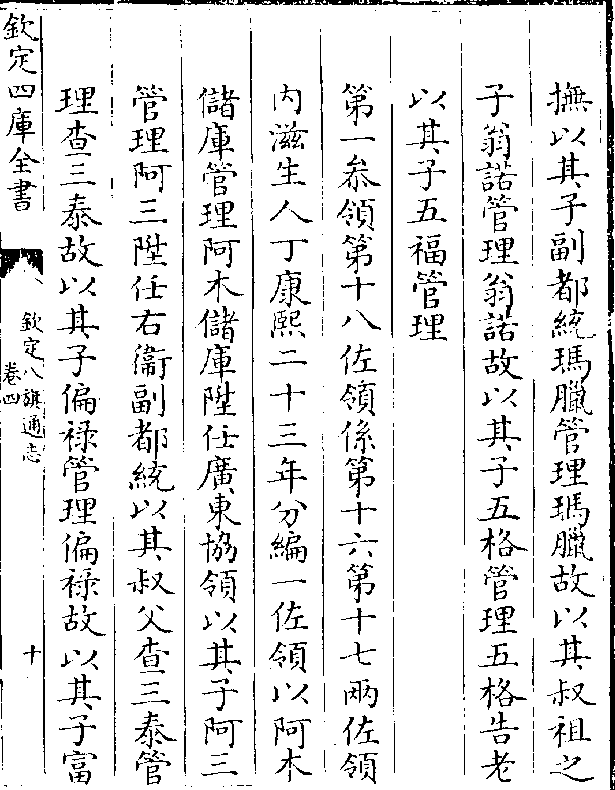 撫以其子副都統瑪臘管理瑪臘故以其叔祖之
子翁諾管理翁諾故以其子五格管理五格告老
以其子五福管理
第一叅領第十八佐領係第十六第十七兩佐領
内滋生人丁康熙二十三年分編一佐領以阿木
儲庫管理阿木儲庫陞任廣東協領以其子阿三
管理阿三陞任右衞副都統以其叔父查三泰管
理查三泰故以其子偏禄管理偏禄故以其子富
欽定四庫全書
欽定八旗通志
卷四
十